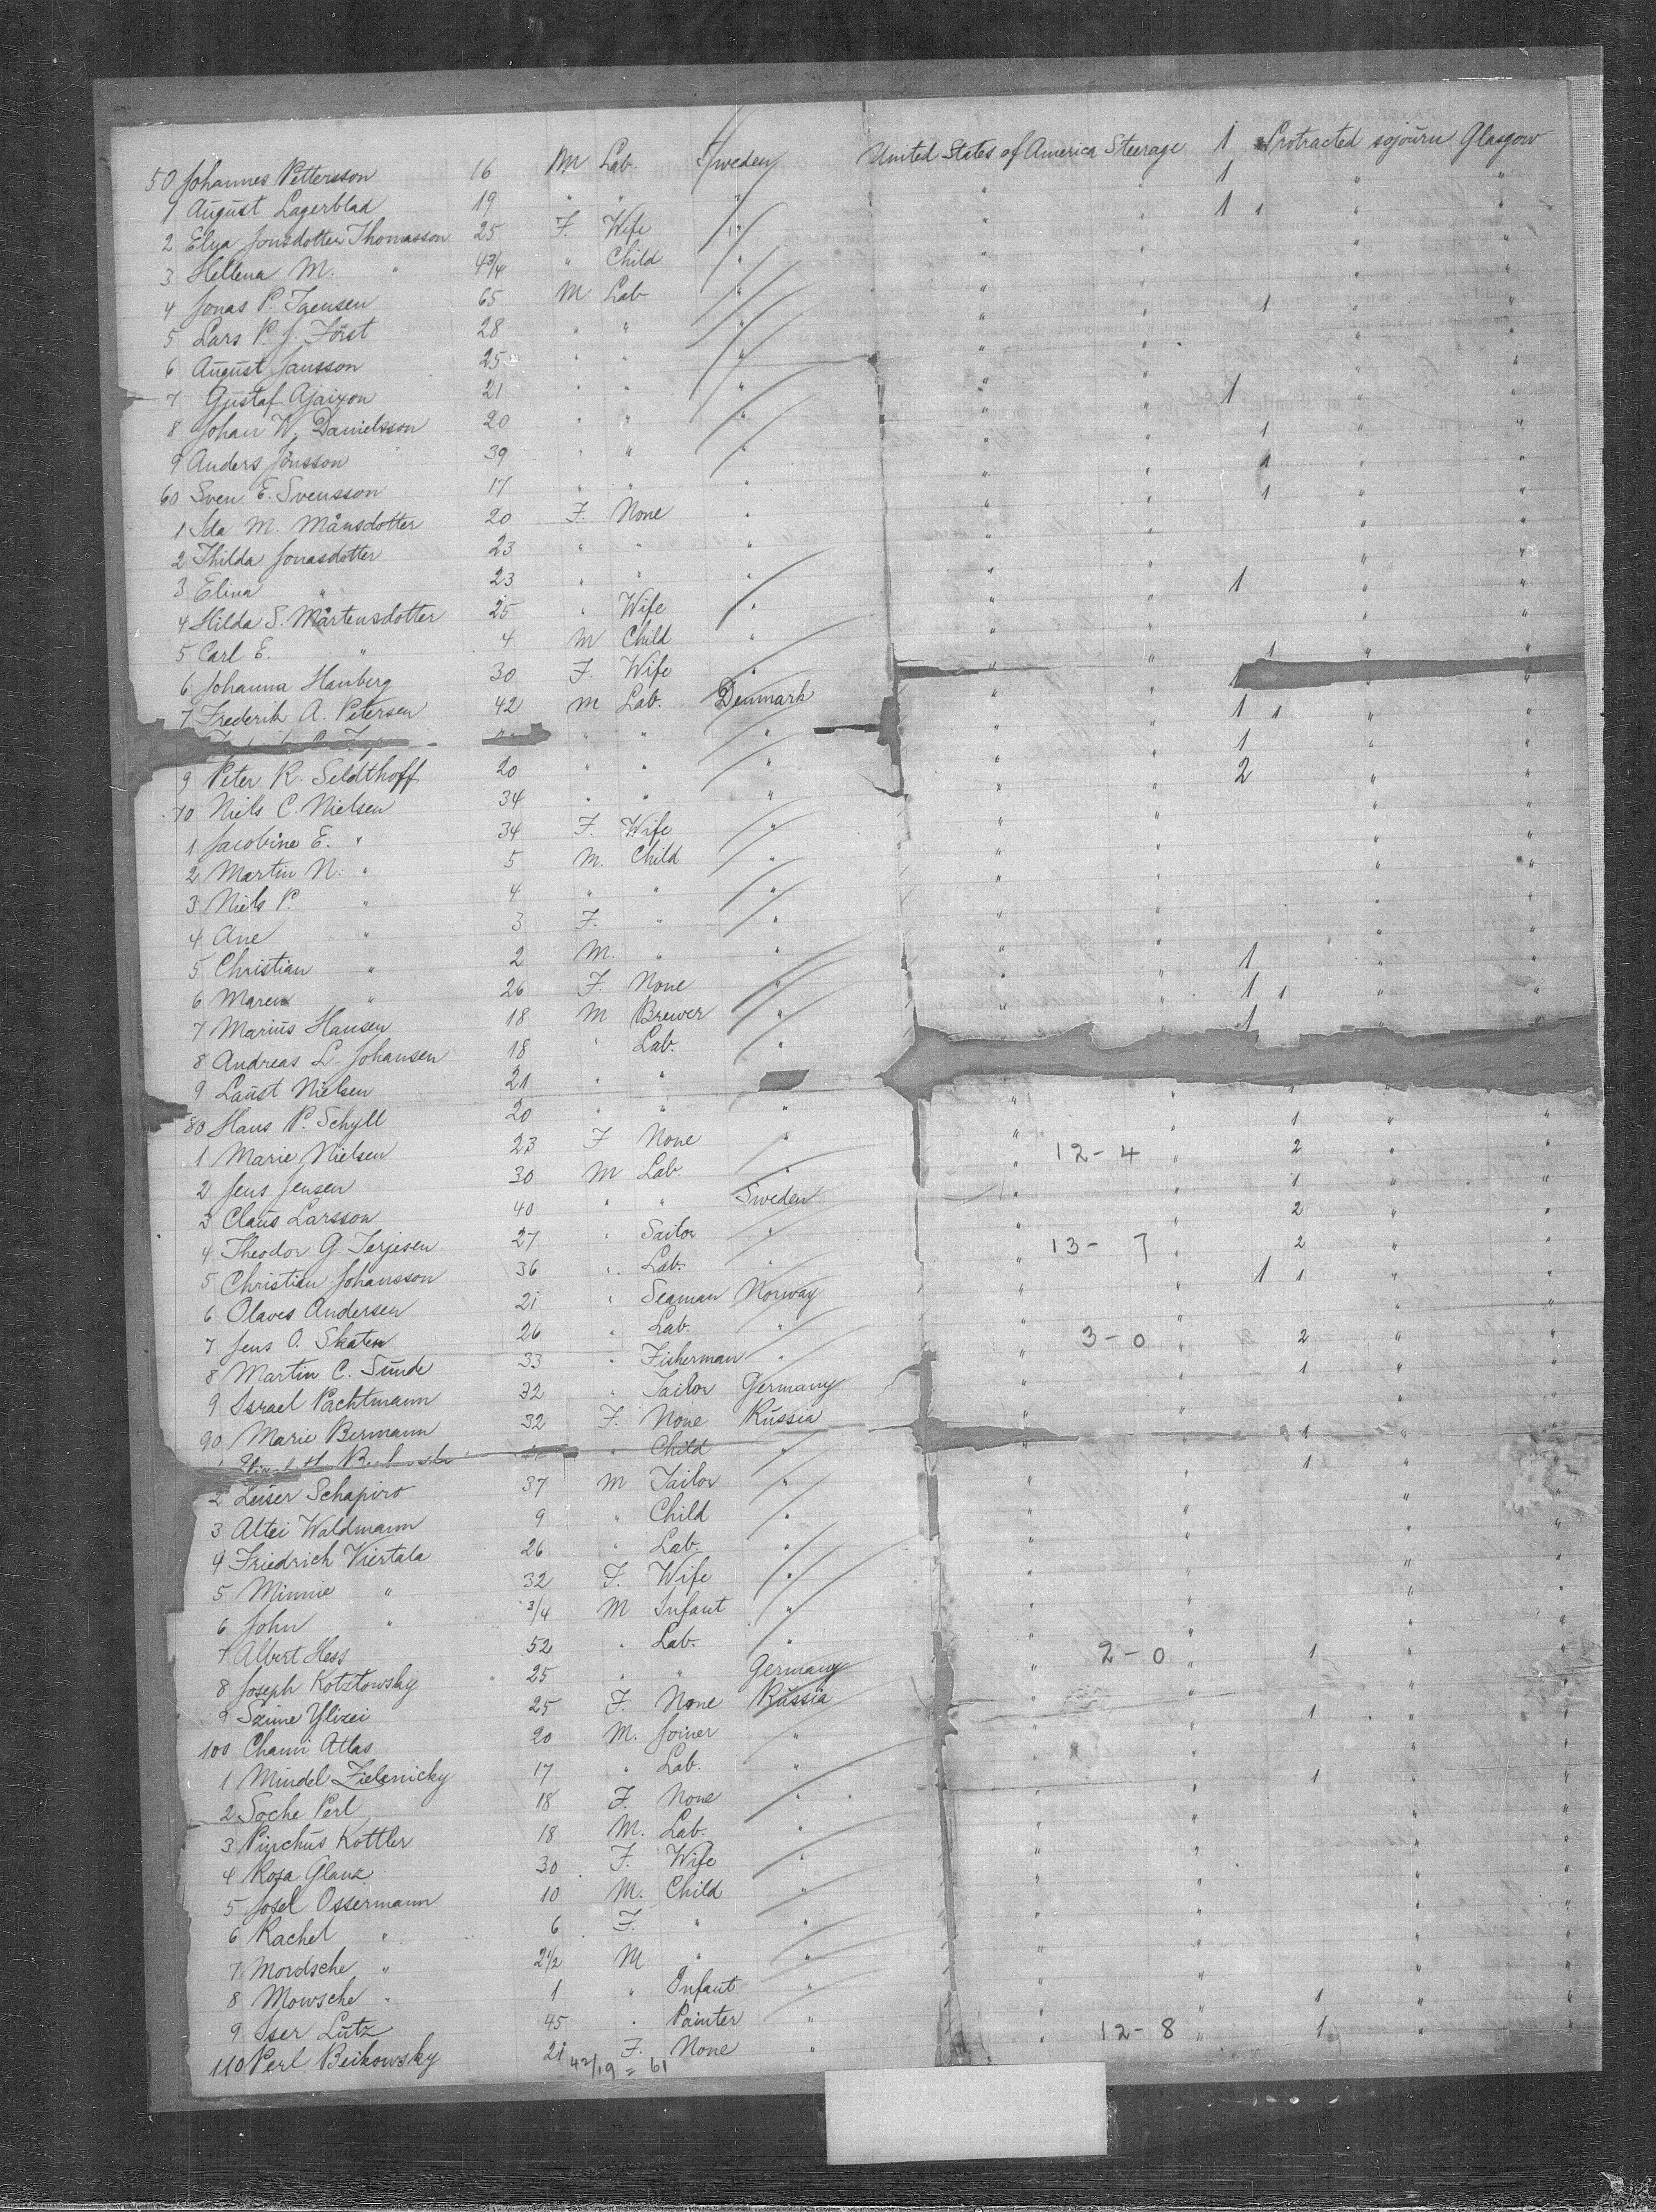 50 Johannes Pettersson 16 M Lab. Sweden United States of America Steerage 1 Protracted sojourn Glasgow
1 August Lagerblad 19 " " " " " 1 " "
2 Elya Jonsdotter Thomasson 25 F. Wife " " " 1 1 " "
3 Hellena M. " 4 3/4 " Child " " " "
4 Jonas P. 65 M Lab " " " " "
5 Lars P. J. Först 28 " " " " " 1 " "
6 August Jansson 25 " " " " " " "
7 Gustaf 21 " " " " " " "
8 Johan W. Danielsson 20 " " " " " 1 " "
9 Anders Jönsson 39 " " " " " 1 " "
60 Sven E. Svensson 17 " " " " " 1 " "
1 Ida M. Månsdotter 20 F. None " " " 1 " "
2 Thilda Jonasdotter 23 " " " " " " "
3 Elina " 23 " " " " " " "
4 Hilda S. Mårtensdotter 25 " Wife " " " 1 " "
5 Carl E. " 4 M Child " " " " "
6 Johanna Hanberg 30 F. Wife " " " 1 " "
7 Frederik A. Petersen 42 M Lab. Denmark " " "
" " " " " 1 1 " "
9 Peter R. Seldthoff 20 " " " " " 1 " "
70 Niels C. Nielsen 34 " " " " " 2 " "
1 Jacobine E. " 34 F. Wife " " " " "
2 Martin N. " 5 M. Child " " " " "
3 Niels P. " 4 " " " " " " "
4 Ane " 3 F. " " " " " "
5 Christian " 2 M. " " " " " "
6 Maren " 26 F. None " " " 1 " "
7 Marius Hansen 18 M Brewer " " " 1 1 " "
8 Andreas L. Johansen 18 " Lab. " 1
9 Laust Nielsen 21 " "
80 Hans P. Schyll 20 " " " " " 1 "
1 Marie Nielsen 23 F None " " " 1 " "
2 Jens Jensen 30 M Lab. " " 12-4 " 2 " "
3 Claus Larsson 40 " " Sweden " " 1 " "
4 Theodor G. Terjesen 27 " Sailor " " " 2 " "
5 Christian Johansson 36 " Lab. " " 13-7 " 2 " "
6 Olaves Andersen 21 " Seaman Norway " " 1 1 " "
7 Jens O. Skaten 26 " Lab. " " " " "
8 Martin C. Sunde 33 " Fisherman " " 3-0 " 2 " "
9 Israel Pachtmann 32 " Tailor Germany " " 1 " "
90 Marie Bermann 32 F. None Russia " " " "
" Child " " " 1 "
2 Leiser Schapiro 37 M Tailor " " " 1 " "
3 Altei Waldmann 9 " Child " " " " "
4 Friedrich Viertala 26 " Lab. " " " " "
5 Minnie " 32 F. Wife " " " " "
6 John " 3/4 M Infant " " " " "
7 Albert Hess 52 " Lab. " " " " "
8 Joseph Kotztowsky 25 " " Germany " 2-0 " 1 " "
9 25 F. None Russia " " " "
100 Chami Atlas 20 M. Joiner " " " 1 " "
1 Mindel Zielenicky 17 " Lab. " " " " "
2 Soche Perl 18 F. None " " " 1 " "
3 Pinchus Kottler 18 M. Lab. " " " " "
4 Rosa Glanz 30 F. Wife " " " " "
5 Josel Ossermann 10 M. Child " " " " "
6 Rachel " 6 F. " " " " " "
7 Mordsche " 2 1/2 M " " " " " "
8 Mowsche " 1 " Infant " " " " "
9 Iser Lutz 45 " Painter " " " 1 " "
110 Perl Beikowsky 21 F. None " " 12-8 " 1 " "
42/19 = 61